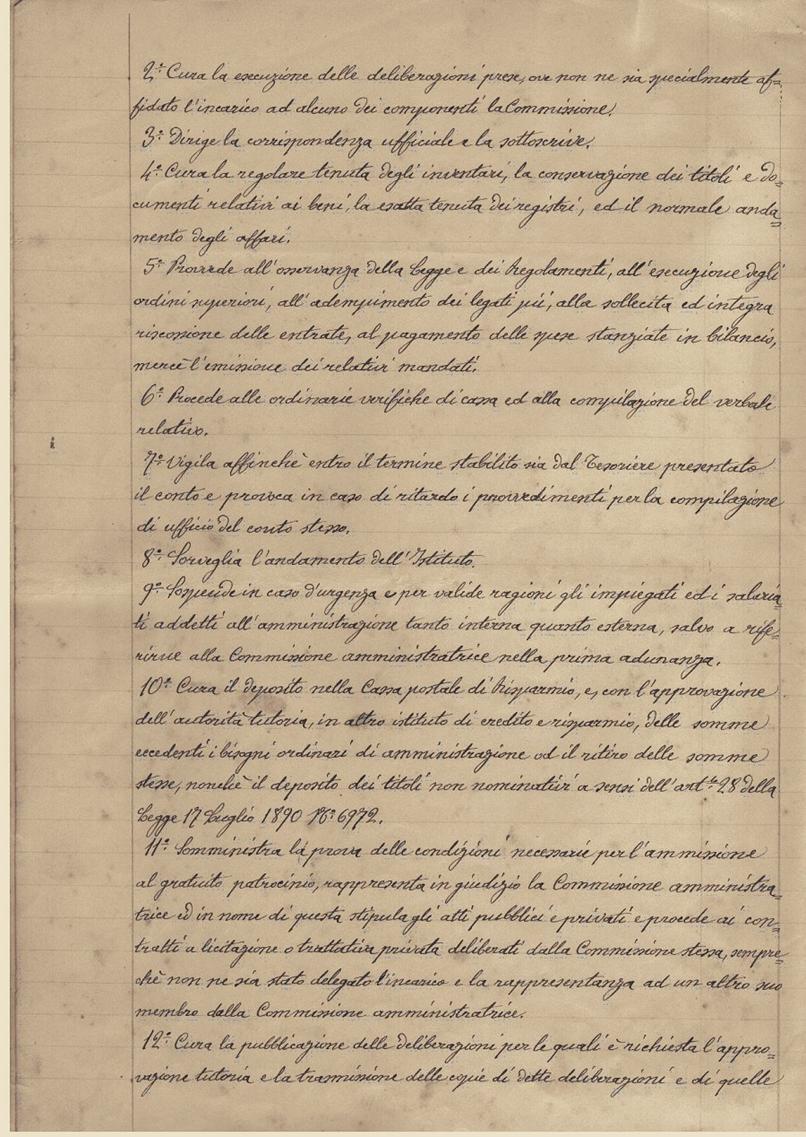 2° Cura la esecuzione delle deliberazioni prese, ove non ne sia specialmente af=
fidato l'incarico ad alcuno dei componenti la Commissione.
3° Dirige la corrispondenza ufficiale e la sottoscrive.
4° Cura la regolare tenuta degli inventari, la conservazione dei titoli e do=
cumenti relativi ai beni, la esatta tenuta dei registri, ed il normale anda=
mento degli affari.
5° Provvede all'osservanza della Legge e dei Regolamenti, all'esecuzione degli
ordini superiori, all'adempimento dei legati pii, alla sollecita ed integra
riscossione delle entrate, al pagamento delle spese stanziate in bilancio,
mercè l'emissione dei relativi mandati.
6° Procede alle ordinarie verifiche di cassa ed alla compilazione del verbale
relativo.
7° Vigila affinchè entro il termine stabilito sia dal Tesoriere presentato
il conto e provoca in caso di ritardo i provvedimenti per la compilazione
di ufficio del conto stesso.
8° Sorveglia l'andamento dell'Istituto.
9° Sospende in caso d'urgenza e per valide ragioni gli impiegati ed i salaria=
ti addetti all'amministrazione tanto interna quanto esterna, salvo a rife=
rirne alla Commissione amministratrice nella prima adunanza.
10° Cura il deposito nella Cassa postale di Risparmio, e, con l'approvazione
dell'autorità tutoria, in altro istituto di credito e risparmio, delle somme
eccedenti i bisogni ordinari di amministrazione od il ritiro delle somme
stesse, nonchè il deposito dei titoli non nominativi a sensi dell'art.lo 28 della
Legge 17 Luglio 1890 N° 6972.
11° Somministra la prova delle condizioni necessarie per l'ammissione
al gratuito patrocinio, rappresenta in giudizio la Commissione amministra=
trice ed in nome di questa stipula gli atti pubblici e privati e procede ai con=
tratti a licitazione o trattativa privata deliberati dalla Commissione stessa, sempre=
chè non ne sia stato delegato l'incarico e la rappresentanza ad un altro suo
membro dalla Commissione amministratrice.
12° Cura la pubblicazione delle deliberazioni per le quali è richiesta l'appro=
vazione tutoria e la trasmissione delle copie di dette deliberazioni e di quelle